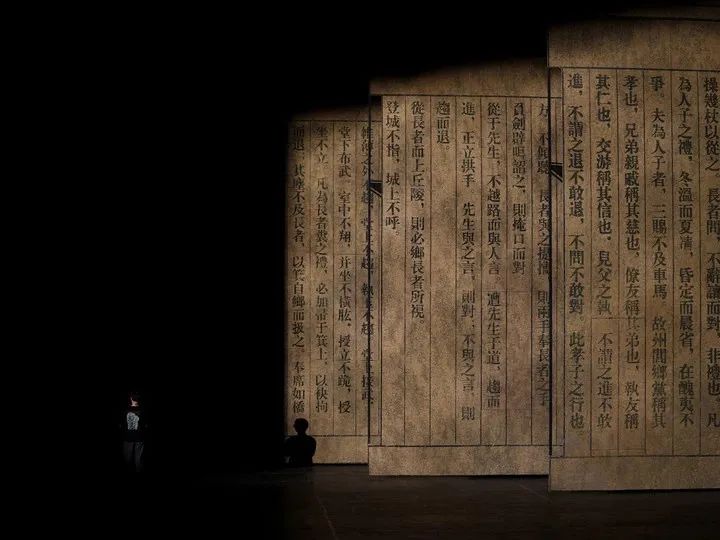 操幾杖以從之 長者問，不辭讓而對，非禮也。凡
為人子之禮，冬溫而夏凊，昏定而晨省，在醜夷不
爭。夫為人子者，三賜不及車馬 故州閭鄉黨稱其
孝也，兄弟親戚稱其慈也，僚友稱其弟也，執友稱
其仁也，交游稱其信也。見父之執 不謂之進不敢
進，不謂之退不敢退，不問不敢對 此孝子之行也
方 不傾聽 長者與之提攜 則兩手奉長者之手
負劍辟咡詔之，則掩口而對
從于先生，不越路而與人言 遭先生于道，趨而
進，正立拱手 先生與之言，則對；不與之言 則
趨而退
從長者而上丘陵，則必鄉長者所視。
登城不指，城上不呼。
帷薄之外不趨，堂上不趨，執玉不趨 堂上接武，
堂下布武 室中不翔，并坐不橫肱，授立不跪，授
坐不立 凡為長者糞之禮，必加帚于箕上，以袂拘
而退；其塵不及長者，以箕自鄉而扱之。奉席如橋